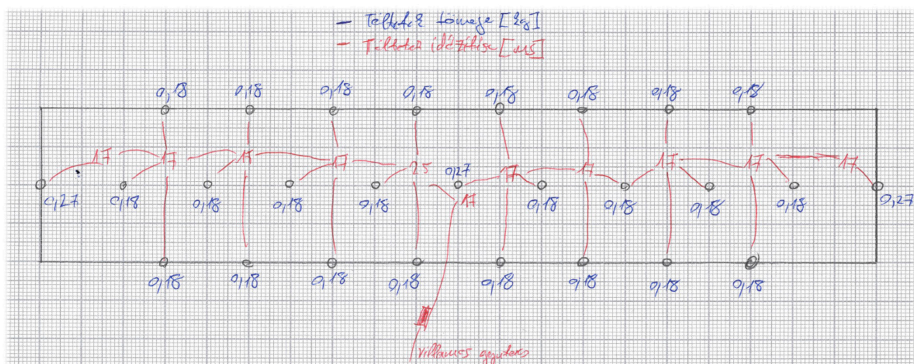 — Töltetek tömege [kg]
— Töltetek időzítése [ms]
0,18 0,18 0,18 0,18 0,18 0,18 0,18 0,18
17 17 17 17 25 17 17 17 17 17
0,27
17
0,27 0,18 0,18 0,18 0,18 0,18 0,18 0,18 0,18 0,27
0,18 0,18 0,18 0,18 0,18 0,18 0,18 0,18
villamos gyutacs